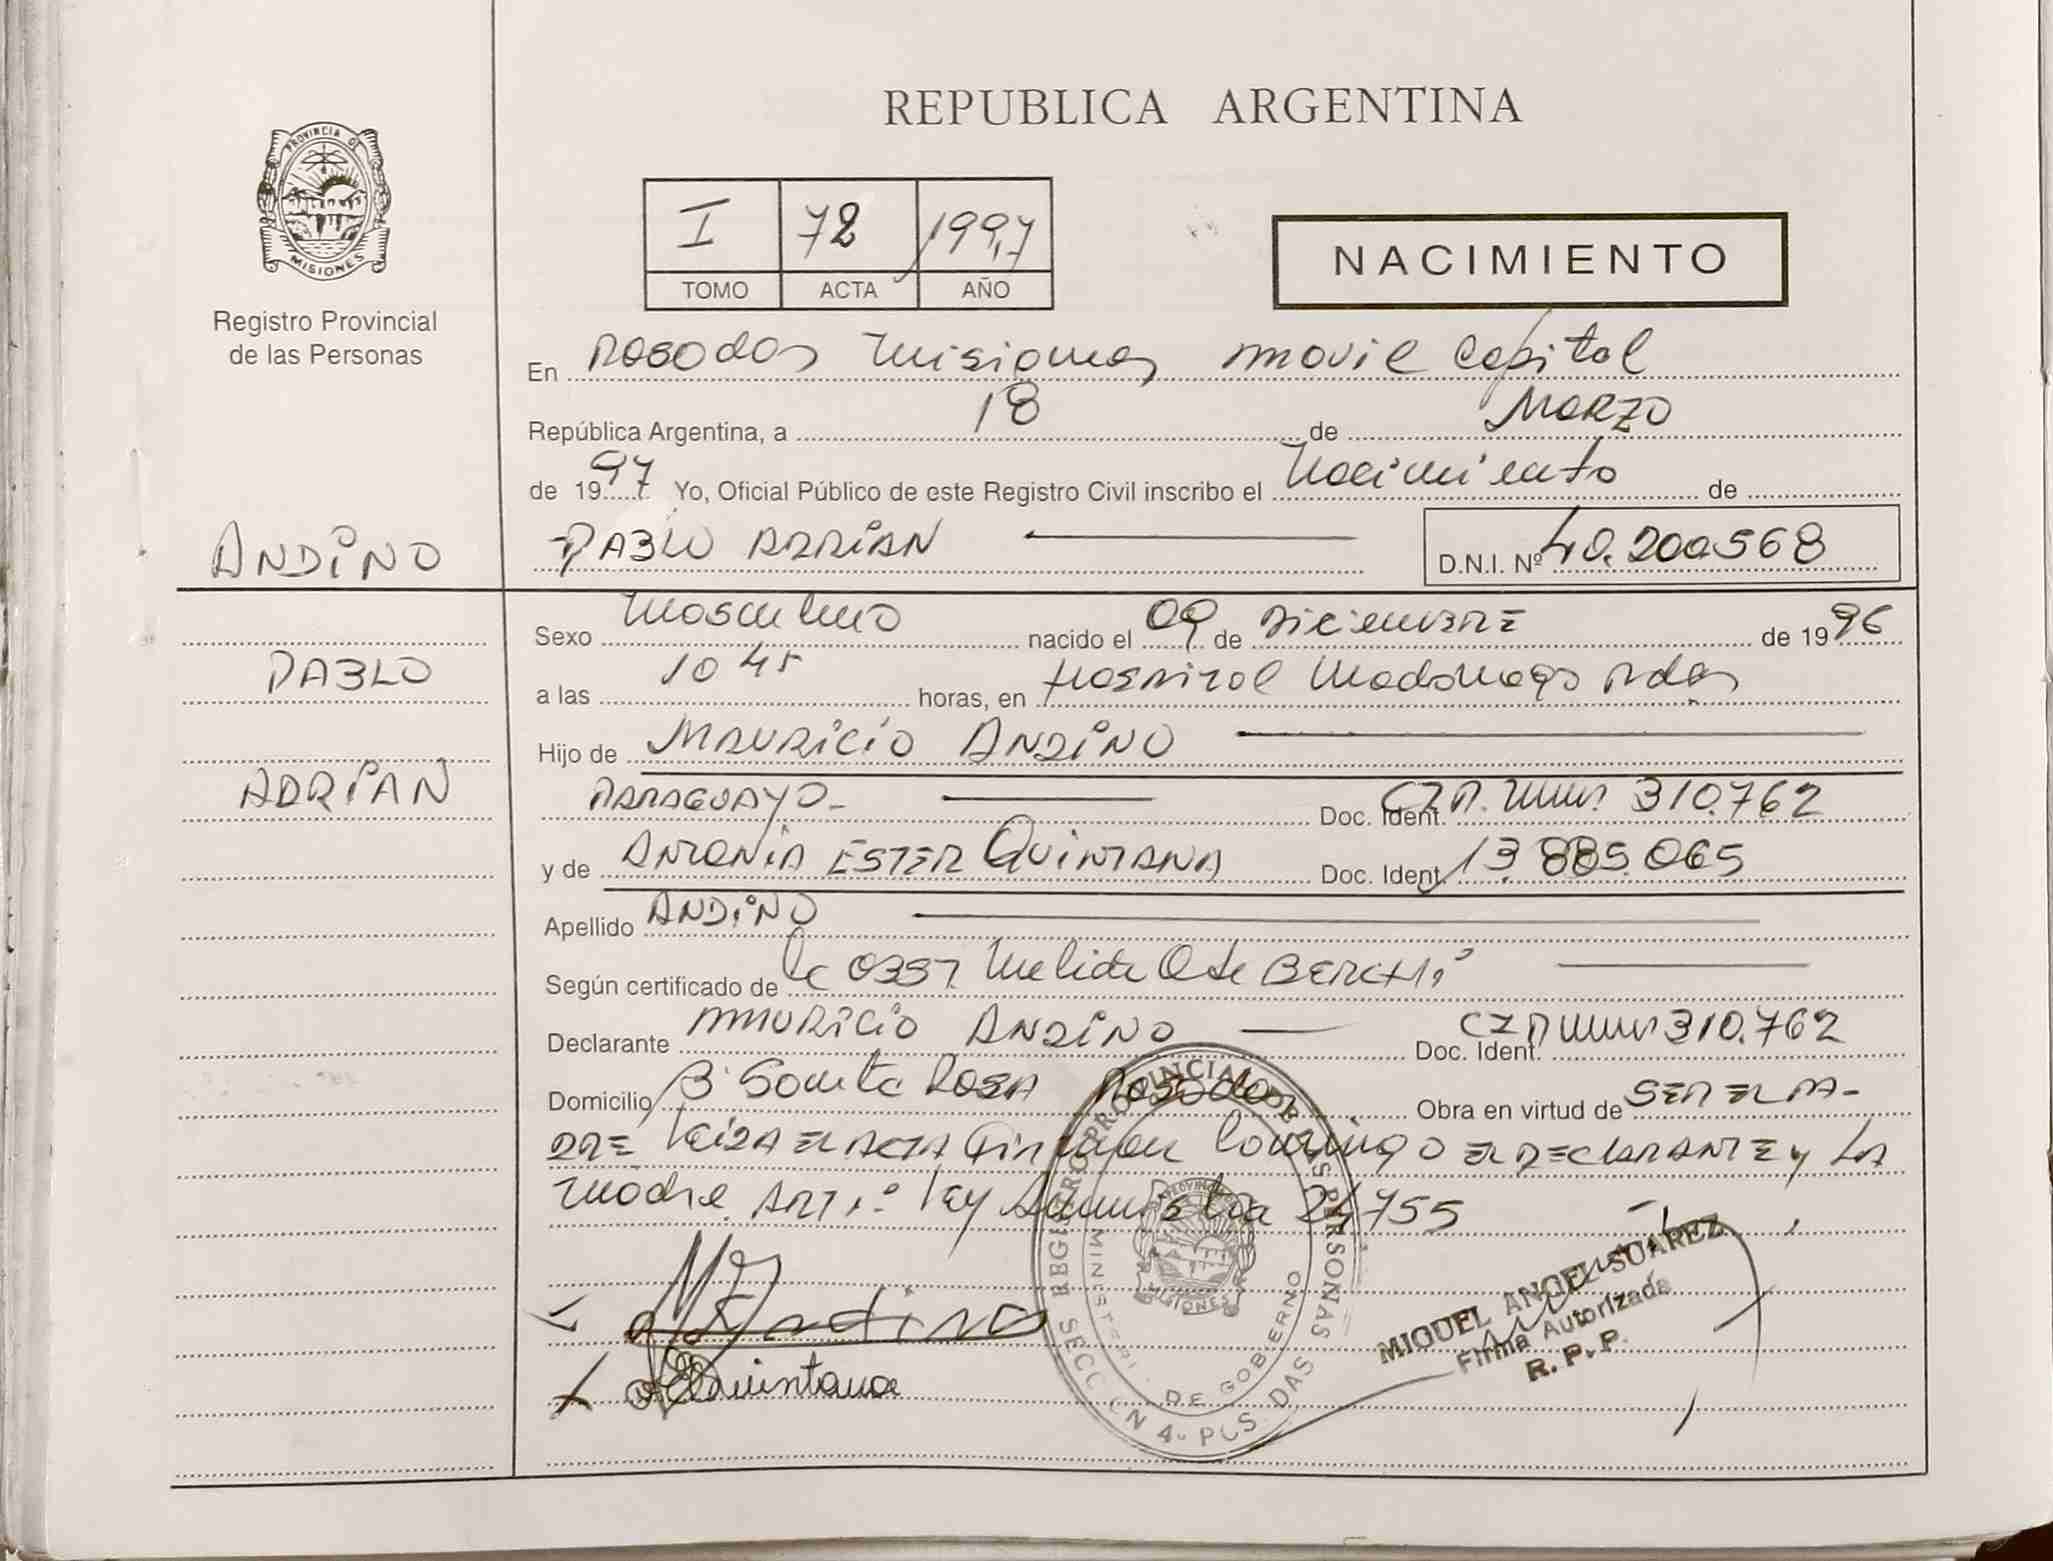 REPUBLICA ARGENTINA
PROVINCIA DE
MISIONES
Registro Provincial
de las Personas
I 72 1997
TOMO ACTA AÑO
NACIMIENTO
En Posadas Misiones movil Capital
República Argentina, a 18 de Marzo
de 1997 Yo, Oficial Público de este Registro Civil inscribo el Nacimiento de
ANDINO
PABLO ADRIAN D.N.I. Nº 40.200.568
Sexo Masculino nacido el 09 de Diciembre de 1996
PABLO
a las 10 45 horas, en Hospital Madariaga Pdas
Hijo de MAURICIO ANDINO
ADRIAN
PARAGUAYO - Doc. Ident. 310.762
y de ANTONIA ESTER QUINTANA Doc. Ident. 13.885.065
Apellido ANDINO
Según certificado de
Declarante MAURICIO ANDINO Doc. Ident. 310.762
Domicilio B° Santa Rosa Posadas Obra en virtud de SER EL PA-
DRE Leida el acta firman conmigo EL DECLARANTE y LA
Madre ART 1° Ley 24755
Andino
Quintana
REGISTRO PROVINCIAL DE LAS PERSONAS
MINISTERIO DE GOBIERNO
PROVINCIA DE
MISIONES
SECCION 4ª POSADAS
MIGUEL ANGEL SUAREZ
Firma Autorizada
R. P. P.